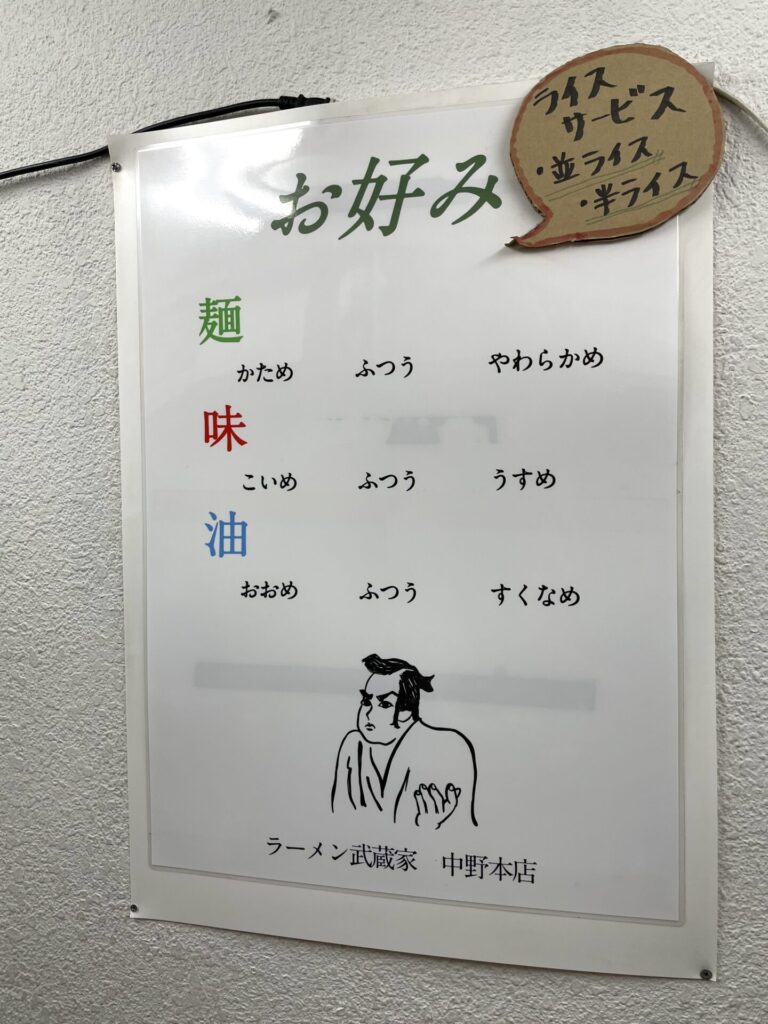 ライス
サービス
・並ライス
・半ライス
お好み
麺
かため ふつう やわらかめ
味
こいめ ふつう うすめ
油
おおめ ふつう すくなめ
ラーメン武蔵家 中野本店